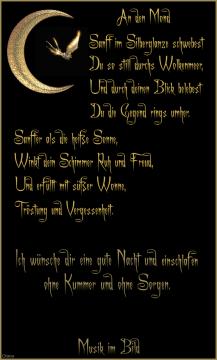 An den Mond
Sanft im Silberglanze schwebest
Du so still durchs Wolkenmeer,
Und durch deinen Blick belebest
Du die Gegend rings umher.
Sanfter als die heiße Sonne,
Winkt dein Schimmer Ruh und Freud,
Und erfüllt mit süßer Wonne,
Tröstung und Vergessenheit.
Ich wünsche dir eine gute Nacht und einschlafen
ohne Kummer und ohne Sorgen.
Musik im Bild